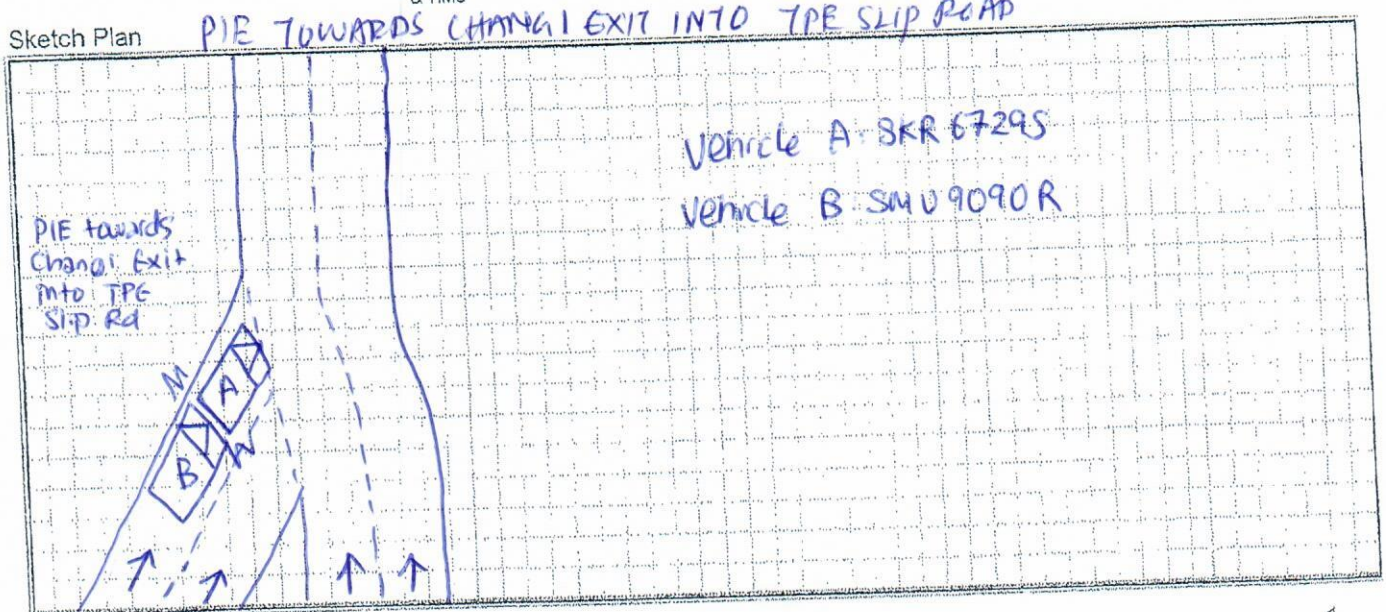 Sketch Plan PIE TOWARDS CHANGI EXIT INTO TPE SLIP ROAD
Vehicle A: SKR 6729S
Vehicle B: SMU9090R
PIE towards
Changi Exit
into TPE
Slip Rd
A
B